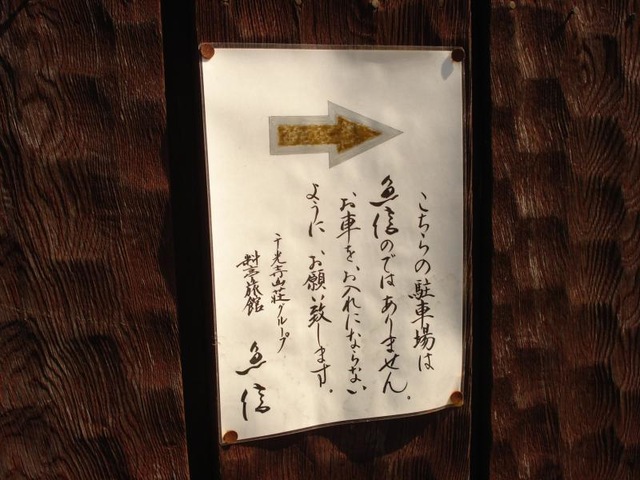 こちらの駐車場は
魚信のではありません。
お車を、お入れにならない
ように お願い致します。
千光寺山荘グループ
料亭旅館
魚信